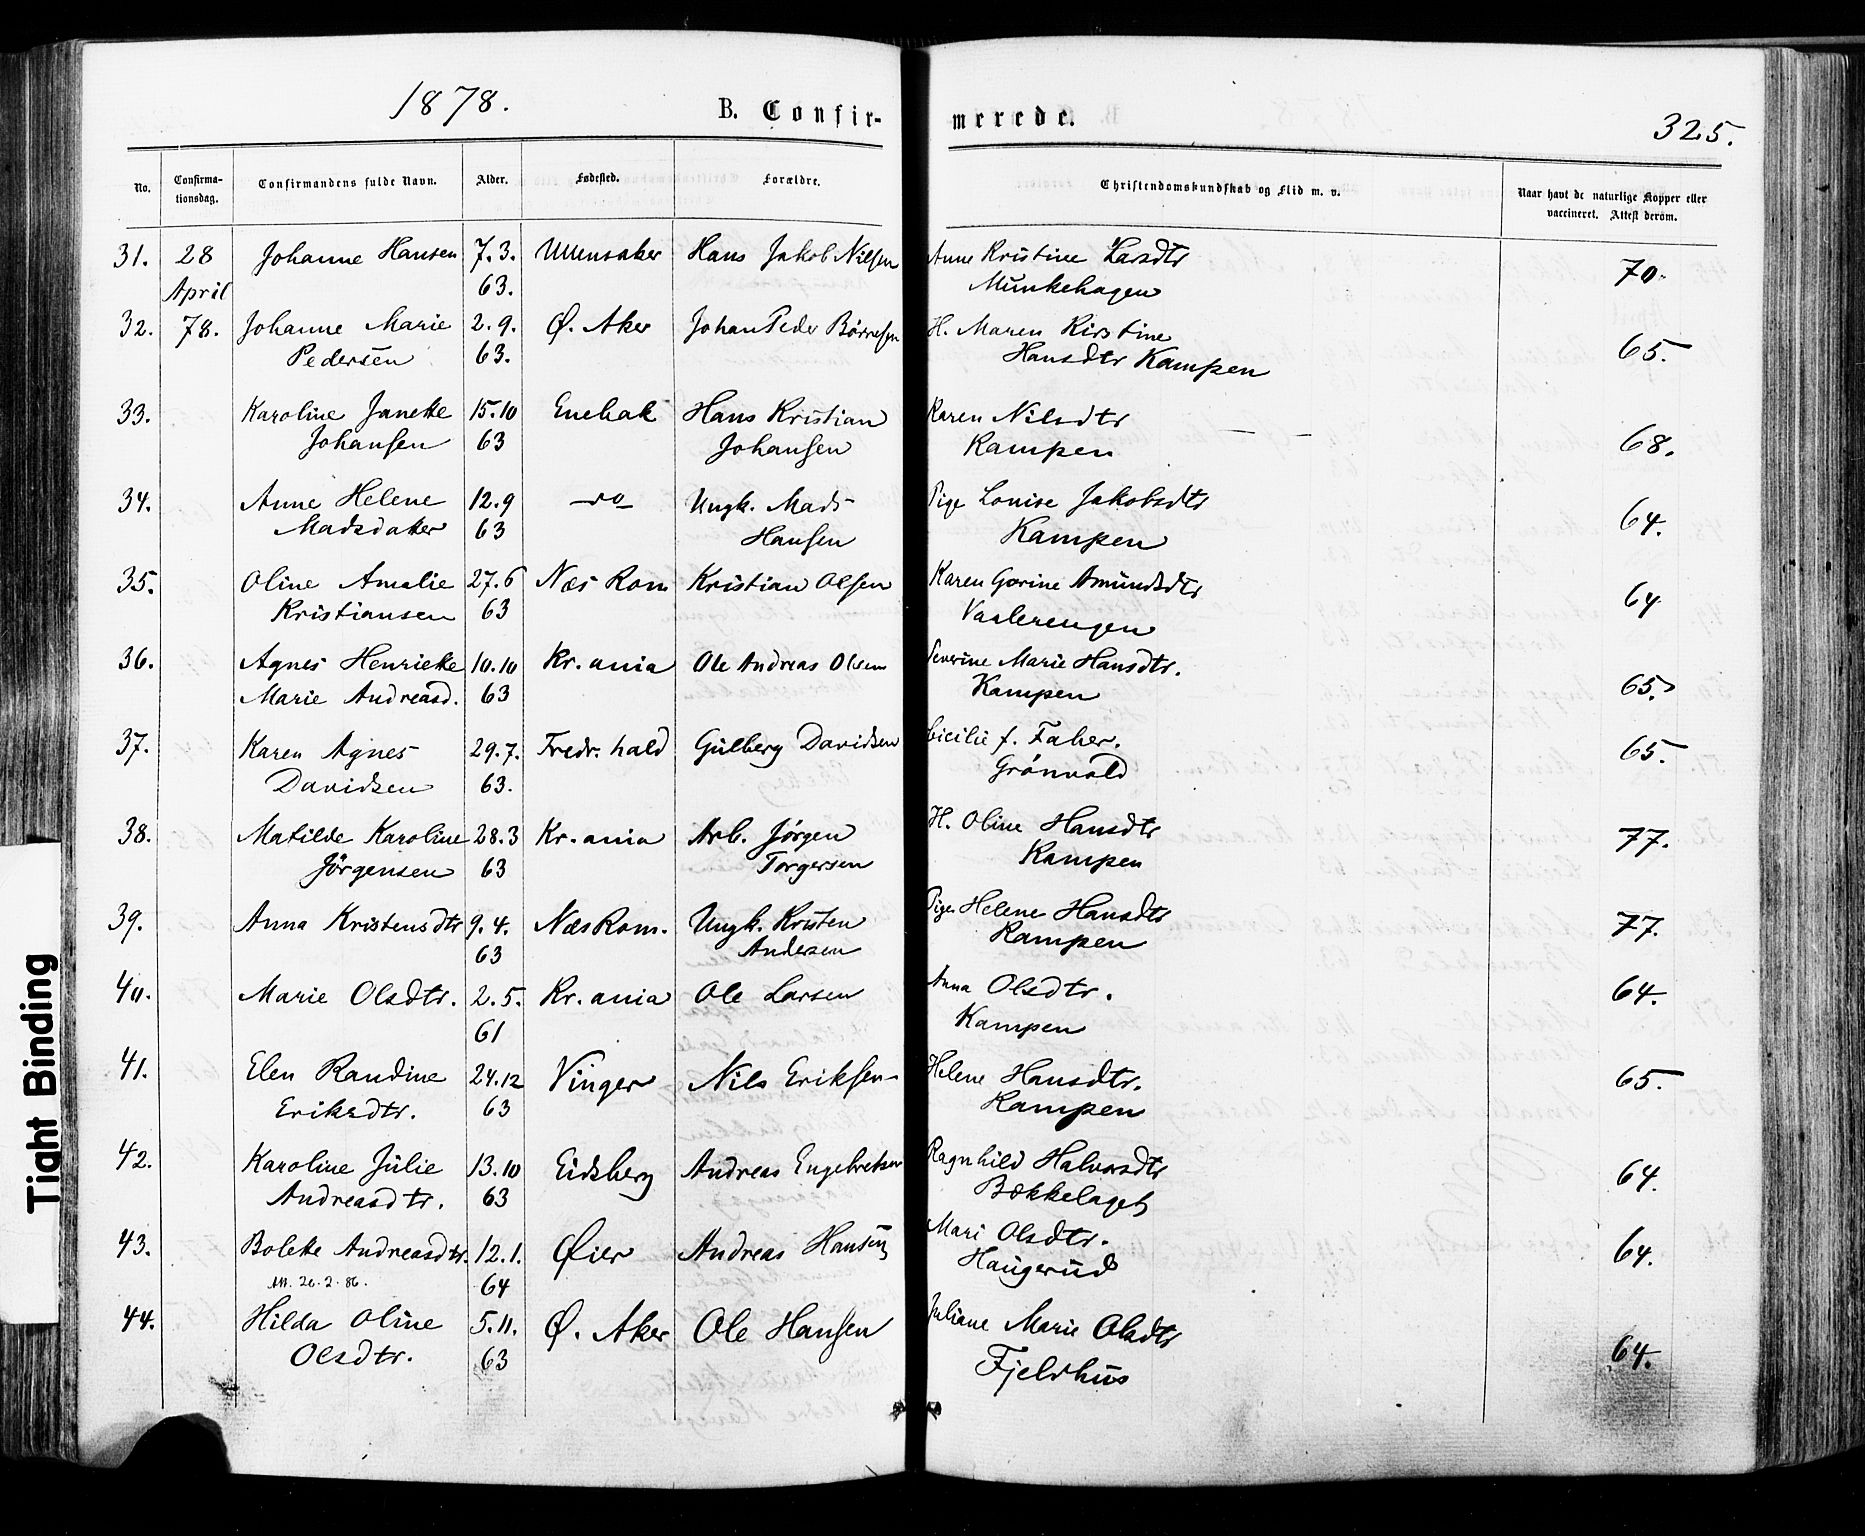 1878.
B. Confirmerede.
325.
No.
Confirmationsdag.
Confirmandens fulde Navn.
Alder.
Fødested.
Forældre.
Christendomskundskab og Flid m. v.
Naar havt de naturlige Kopper eller vaccineret. Attest derom.
31. 28 Johanne Hansen 7.3. Ullensaker Hans Jakob Nilsen Anne Kristine Larsdtr 70.
April 63. Munkehagen
32. 78. Johanne Marie 2.9. Ø. Aker Johan Peder Börresen H. Maren Kirstine 65.
Pedersen 63. Hansdtr Kampen
33. Karoline Janette 15.10 Enebak Hans Kristian Karen Nilsdtr 68.
Johansen 63 Johansen Kampen
34. Anne Helene 12.9 —do— Ungk. Mads Pige Louise Jakobsdtr 64.
Madsdater 63 Hansen Kampen
35. Oline Amalie 27.6 Næs Rom Kristian Olsen Karen Gorine Amundsdtr 64
Kristiansen 63 Vaalerengen
36. Agnes Henriette 10.10 Kr.ania Ole Andreas Olsen Severine Marie Hansdtr. 65.
Marie Andreasd. 63 Kampen
37. Karen Agnes 29.7. Fredr.hald Gulberg Davidsen Cicilie f. Faber. 65.
Davidsen 63. Grönvold
38. Matilde Karoline 28.3 Kr.ania Arb. Jörgen H. Oline Hansdtr 77.
Jörgensen 63 Torgersen Kampen
39. Anna Kristensdtr 9.4. Næs Rom. Ungk. Kristen Pige Helene Hansdtr 77.
63 Andersen Kampen
40. Marie Olsdtr. 2.5. Kr.ania Ole Larsen Anna Olsdtr. 64.
61 Kampen
41. Elen Randine 24.12 Vinger Nils Eriksen Helene Hansdtr. 65.
Eriksdtr. 63 Kampen
42. Karoline Julie 13.10 Eidsberg Andreas Engebretsen Ragnhild Halvorsdtr 64.
Andreasdtr. 63 Bækkelaget
43. Bolette Andreasdtr. 12.1. Øier Andreas Hansen Mari Olsdtr. 64.
Att. 26.2.86. 64 Haugerud
44. Hilda Oline 5.11. Ø. Aker Ole Hansen Juliane Marie Olsdtr 64.
Olsdtr. 63 Fjeldhus
Tight Binding